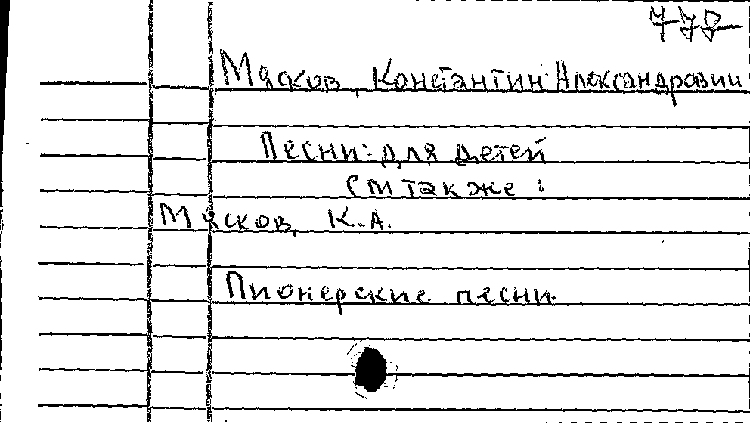 778
Мясков, Константин Александрович
Песни: для детей
См также:
Мясков, К.А.
Пионерские песни.